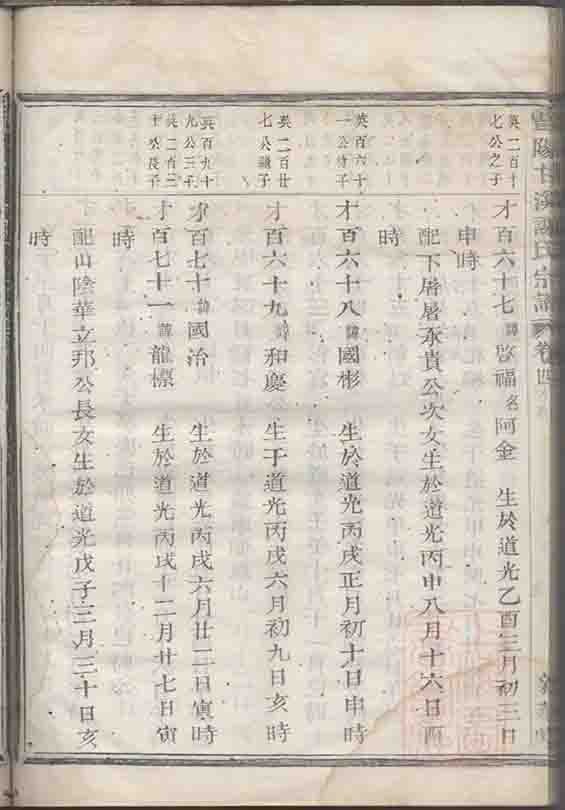 暨陽甘溪謝氏宗譜 卷四
英二百十
七公之子
才百六十七諱啓福名阿金 生於道光乙酉三月初三日
申時
配下屠屠永貴公次女生於道光丙申八月十六日酉
時
英百六十
一公
才百六十八諱國彬 生於道光丙戌正月初十日申時
英二百廿
七公
才百六十九諱和慶 生于道光丙戌六月初九日亥時
英百九十
九公三子
才百七十諱國治 生於道光丙戌六月廿二日寅時
英二百三
十公長子
才百七十一諱龍標 生於道光丙戌十二月廿七日寅
時
配山陰華立邦公長女生於道光戊子三月三十日亥
時